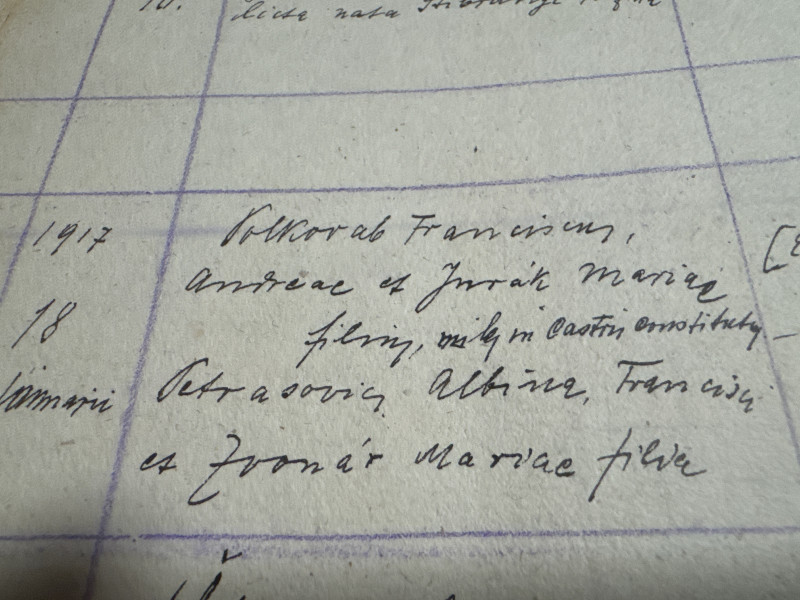 nata
1917
Polkorab Franciscus,
Andreae et Jurák Mariae
18
filius, in Castris constitutus
Januarii
Petrasovics Albina, Francisci
et Zvonár Mariae filia